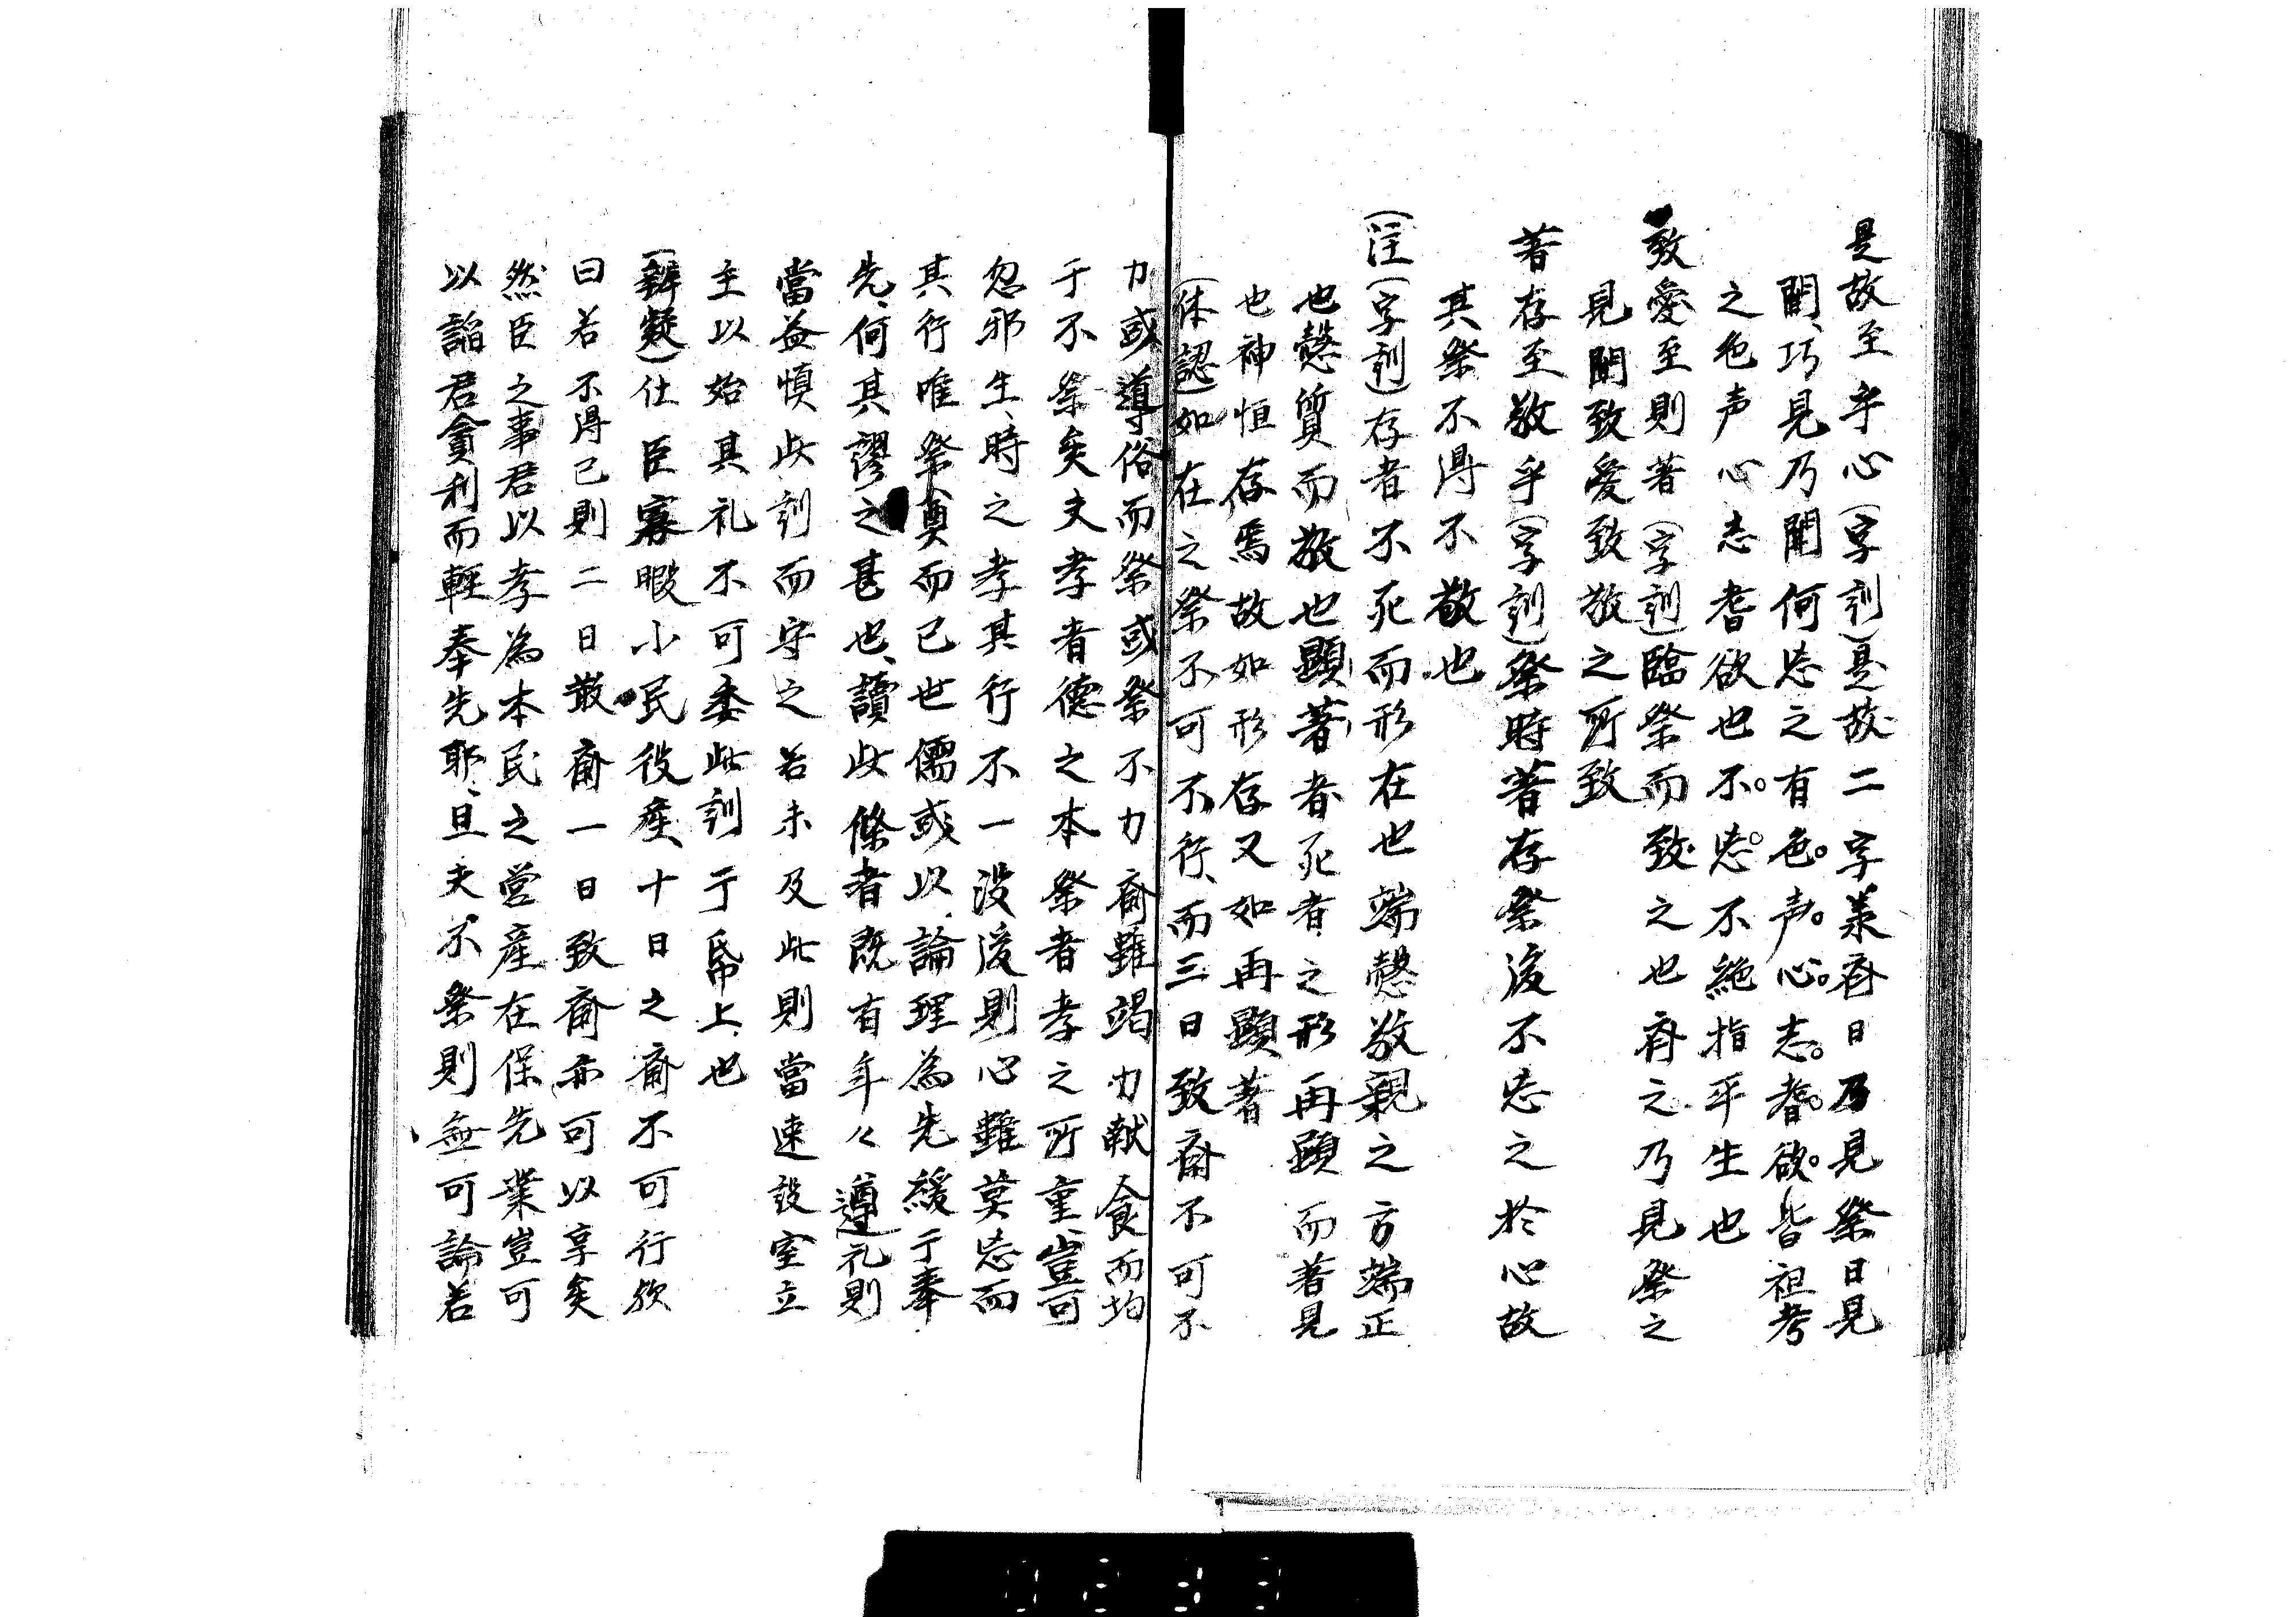 是故至乎心(字訓)是故二字兼斎日乃見祭日見
聞、巧見乃聞何忠之有色。声。心。志。耆。欲。皆祖考
之色声心志耆欲也不。忘。不絶指平生也
致愛至則著(字訓)臨祭而致之也斉之乃見祭之
見聞致愛致敬之所致
著存至敬乎(字訓)祭時著存祭後不忘之於心故
其祭不得不敬也
(注)(字訓)存者不死而形在也端愨敬親之方端正
也愨質而敬也顕著者死者之形再顕而著見
也神恒存焉故如形存又如再顕著
(体認)如在之祭不可不行、而三日致齋不可不
力或導俗而祭或祭不力齋雖竭力献食而均
于不祭矣夫孝者德之本祭者孝之所重、豈可
忽邪生、時之孝其行不一没後則心雖莫忘而
其行唯祭奠而已世儒或以論理為先緩于奉
先、何其謬之甚也、讀此條者既有年々遵礼則
當益慎此訓而守之若未及此則當速設室立
主以始其礼不可委此訓于帋上也
(辨疑)仕臣寡暇小民役産、十日之齋不可行欤
曰若不得已則二日散齋一日致齋亦可以享矣
然臣之事君以孝為本民之営産在保先業豈可
以諂君貪利而輕奉先耶、且夫不祭則無可論若